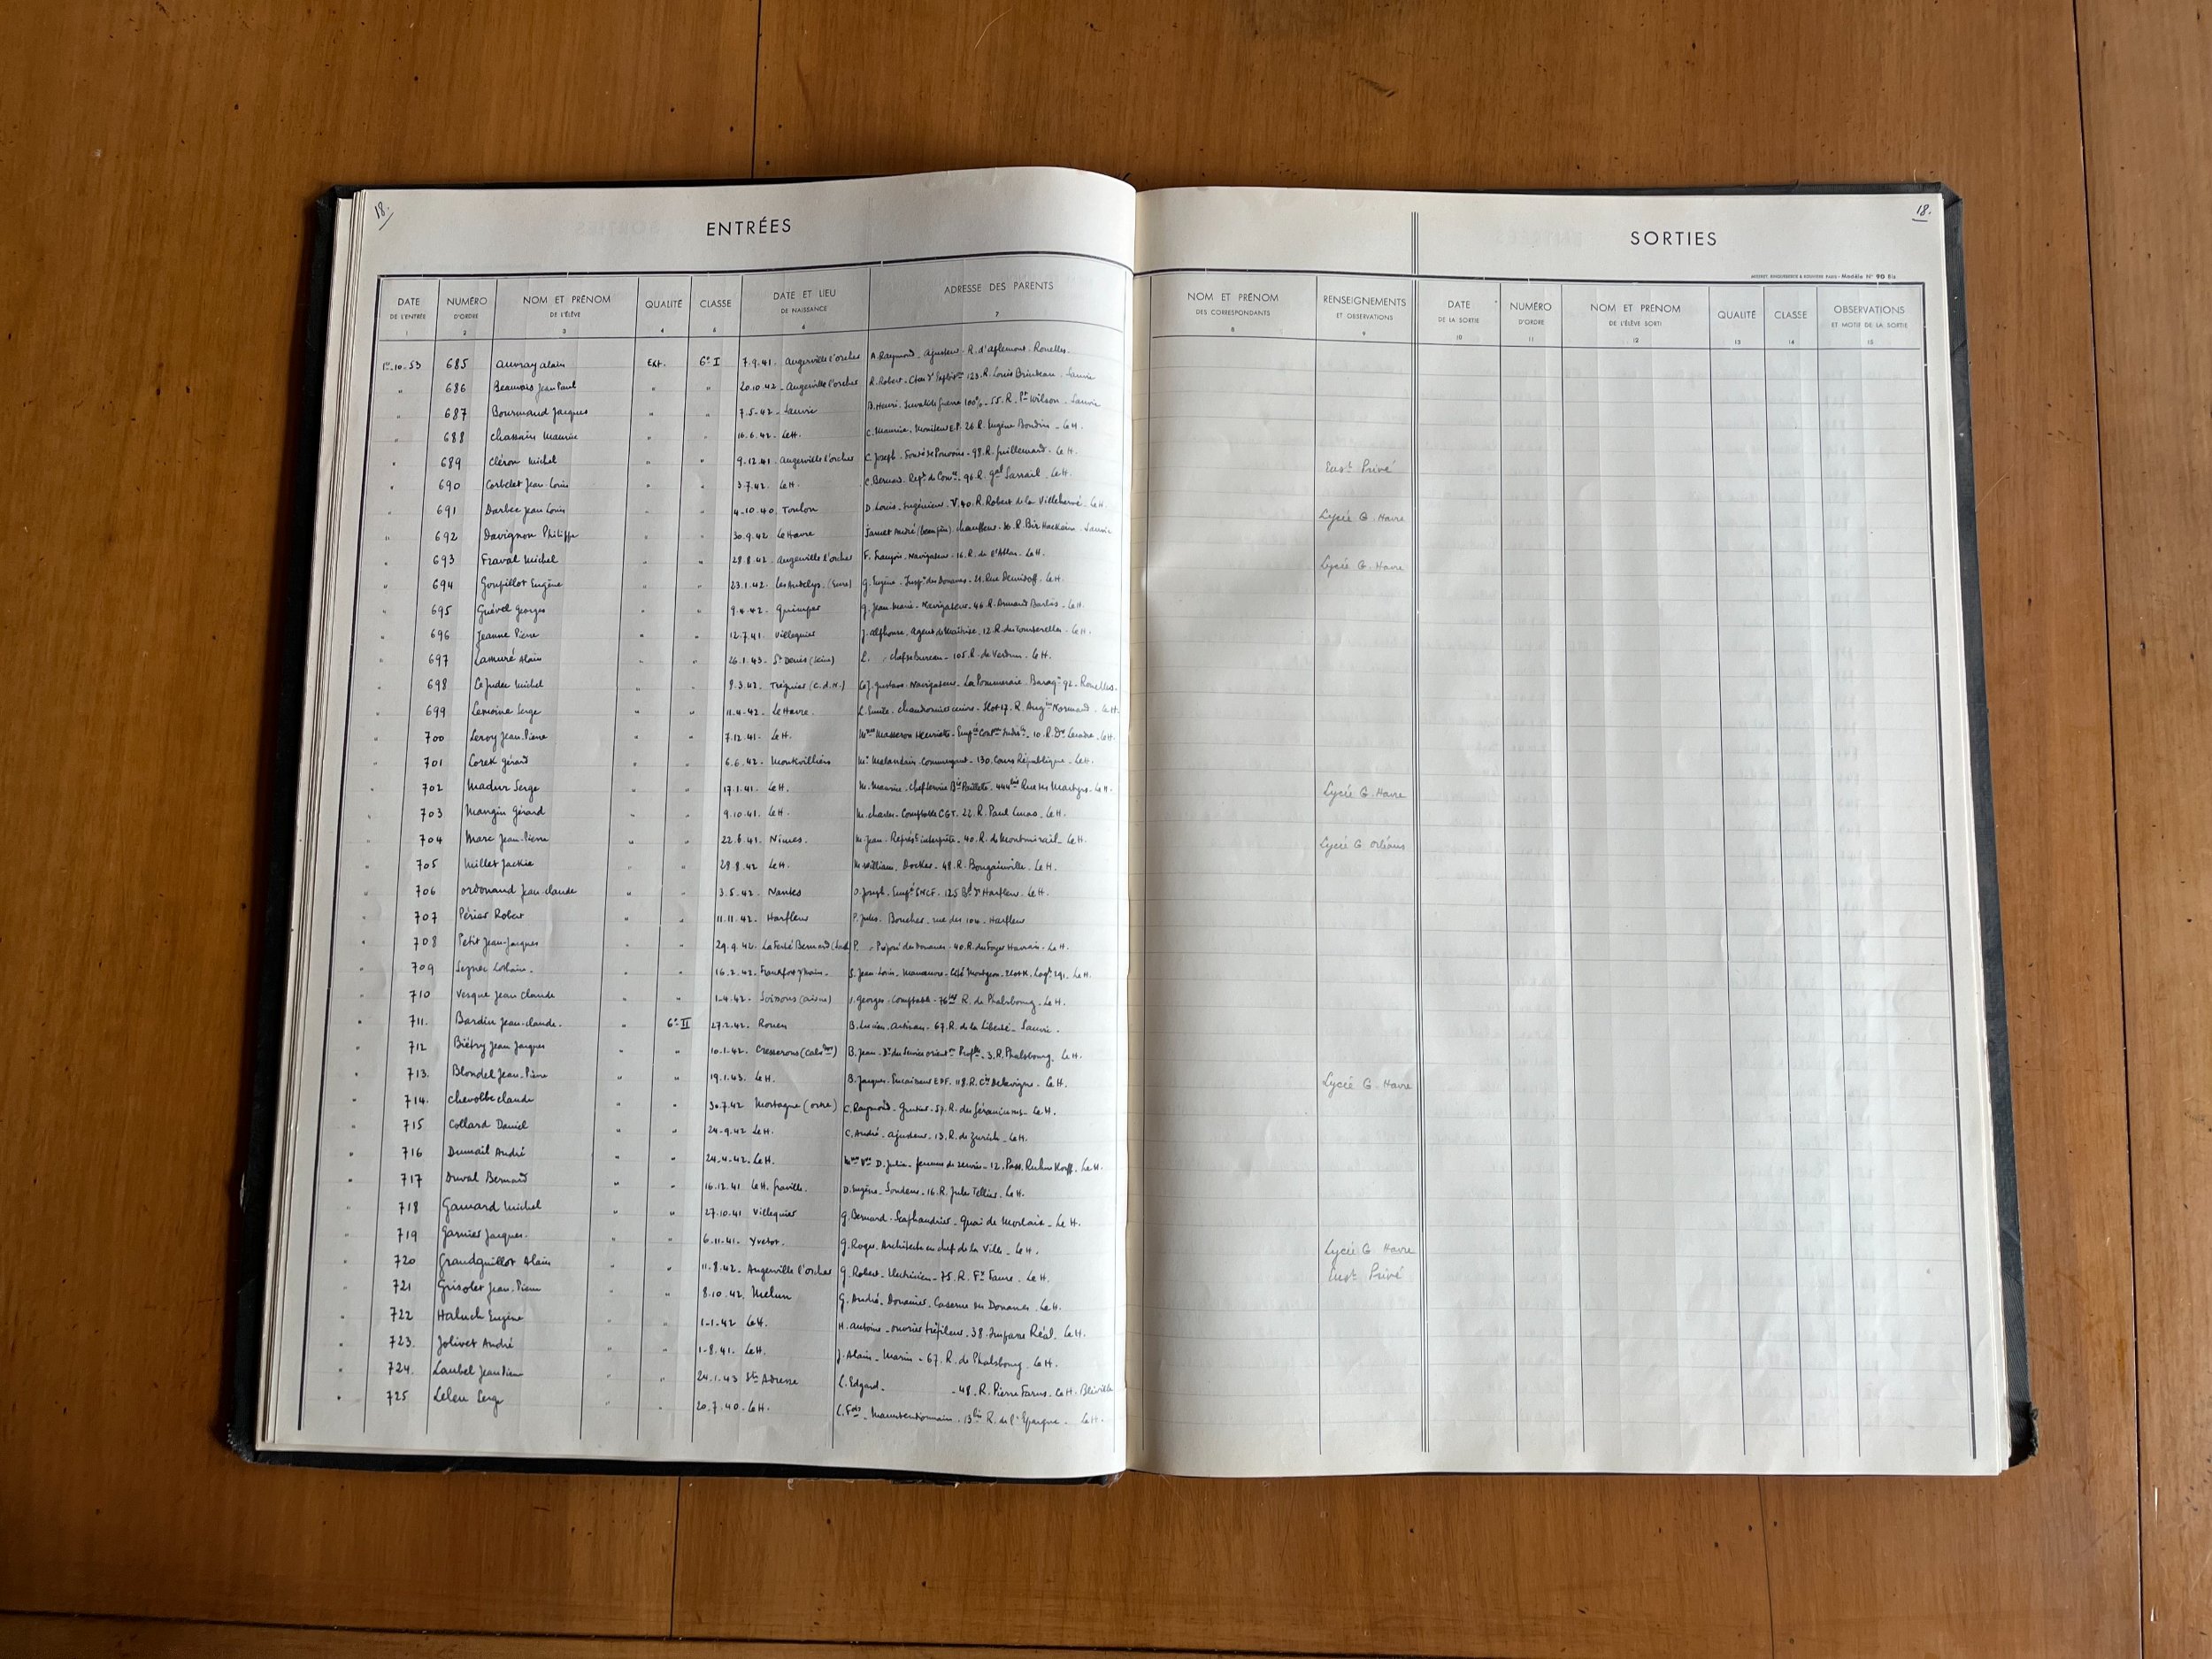 18.
ENTRÉES
DATE DE L'ENTRÉE 1
NUMÉRO D'ORDRE 2
NOM ET PRÉNOM DE L'ÉLÈVE 3
QUALITÉ 4
CLASSE 5
DATE ET LIEU DE NAISSANCE 6
ADRESSE DES PARENTS 7
1er.10.53 685 Auvray Alain Ext. 6e I 7.9.41. Angerville l'orcher A. Raymond. Ajusteur. R. d'Aplemont. Rouelles.
" 686 Beauvais Jean Paul " " 20.10.42 - Angerville l'orcher R. Robert - 123. R. Louis Brindeau. Sanvic
" 687 Bourmaud Jacques " " 7.5.42 - Sanvic B. Henri. Invalide guerre 100% - 55. R. Pt Wilson. Sanvic
" 688 Chassain Maurice " " 16.6.42 - Le H. C. Maurice. Moniteur E.P. 26 R. Eugène Boudin - Le H.
" 689 Cléron Michel " " 9.12.41. Angerville l'orcher C. Joseph. 98. R. Guillemard. Le H.
" 690 Corbelet Jean-Louis " " 3.7.42. Le H. C. Bernard. Rept de Comce. 96. R. Gal Sarrail. Le H.
" 691 Darbec Jean Louis " " 4-10-40. Toulon D. Louis. Ingénieur. 40. R. Robert de la Villehervé. Le H.
" 692 Davignon Philippe " " 30.9.42 Le Havre Jamet André (beau père) chauffeur. 36. R. Bir Hackeim. Sanvic
" 693 Fraval Michel " " 28.8.42. Angerville l'orcher F. François. Navigateur. 16. R. de l'Abbaye. Le H.
" 694 Goupillot Eugène " " 23.1.42. Les Andelys. (Eure) G. Eugène. Inspr des Douanes. 21. Rue Demidoff. Le H.
" 695 Guével Georges " " 9.4.42. Quimper G. Jean-Marie. Navigateur. 46. R. Armand Barbès. Le H.
" 696 Jeanne Pierre " " 12.7.41. Villequier J. Alphonse. Agent de Maîtrise. 12. R. des Tourterelles. Le H.
" 697 Lamuré Alain " " 26.1.43. St Denis (Seine) L. " Chef de Bureau. 105. R. de Verdun. Le H.
" 698 Le Judec Michel " " 8.3.42. Tréguier (C.d.N.) Le J. Gustave. Navigateur. La Pommeraie. Baraqt 92. Rouelles.
" 699 Lemoine Serge " " 11.4.42. Le Havre. L. Emile. chaudronnier cuivre. Ilot 17. R. Augtin Normand. Le H.
" 700 Leroy Jean-Pierre " " 7.12.41. Le H. Mme Masseron Henriette - 10. R. Le H.
" 701 Corek Gérard " " 6.6.42. Montivilliers Mr Malandain. Commerçant. 130. Cours République. Le H.
" 702 Madur Serge " " 17.1.41. Le H. M. Maurice. Chef Service 444bis Rue des Martyrs. Le H.
" 703 Mangin Gérard " " 9.10.41. Le H. M. Charles. Comptable CGT. 22. R. Paul Lucas. Le H.
" 704 Marc Jean-Pierre " " 22.6.41. Nîmes. M. Jean. Représt interprète. 40. R. de Montmirail. Le H.
" 705 Millet Jackie " " 28.8.42 Le H. M. William. Docker. 48. R. Bougainville. Le H.
" 706 Ordonaud Jean-Claude " " 3.5.42. Nantes O. Joseph. Empé SNCF. 125 Bd d'Harfleur. Le H.
" 707 Périer Robert " " 11.11.42. Harfleur P. Jules. Boucher. rue des 104. Harfleur
" 708 Petit Jean-Jacques " " 29.9.42. La Ferté Bernard P. " Préposé des Douanes. 40. R. du Foyer Havrais. Le H.
" 709 Seznec Lothaire. " " 16.2.42. Frankfort S. Jean-Louis. Manœuvre. Cité Montgeon. Ilot K. Logt 291. Le H.
" 710 Vesque Jean Claude " " 1.4.42. Soissons (Aisne) V. Georges. Comptable. 76ter R. de Phalsbourg. Le H.
" 711. Bardin Jean-Claude. " 6e II 27.2.42. Rouen B. Lucien. Artisan. 67. R. de la Liberté. Sanvic.
" 712 Biétry Jean Jacques " " 10.1.42. Cresserons (Calvdos) B. Jean. Dr du Service orienton Profle. 3. R. Phalsbourg. Le H.
" 713. Blondel Jean-Pierre " " 19.1.43. Le H. B. Jacques. Encaisseur EDF. 118. R. Cir Delavigne. Le H.
" 714. Chevolbe Claude " " 30.7.42 Mortagne (Orne) C. Raymond. Grutier. 57. R. des Géraniums. Le H.
" 715 Collard Daniel " " 24.9.42 Le H. C. André. ajusteur. 13. R. de Zurich. Le H.
" 716 Dumail André " " 24.4.42. Le H. Mme Vve D. Julia. femme de service. 12. Pass. Ruhmkorff. Le H.
" 717 Duval Bernard " " 16.12.41 Le H. Graville. D. Eugène. Soudeur. 16. R. Jules Tellier. Le H.
" 718 Gamard Michel " " 27.10.41 Villequier G. Bernard. Scaphandrier. Quai de Morlaix. Le H.
" 719 Garnier Jacques. " " 6.11.41. Yvetot. G. Roger. Architecte en chef de la Ville. Le H.
" 720 Grandguillot Alain " " 11.8.42. Angerville l'orcher G. Robert. Electricien. 75. R. Fx Faure. Le H.
" 721 Grisolet Jean-Pierre " " 8.10.42. Melun G. André. Douanier. Caserne des Douanes. Le H.
" 722 Haluch Eugène " " 1.1.42 Le H. H. Antoine. ouvrier tréfileur. 38. Impasse Réal. Le H.
" 723. Jolivet André " " 1.8.41. Le H. J. Alain. Marin. 67. R. de Phalsbourg. Le H.
" 724. Laubel Jean Pierre " " 24.1.43 Ste Adresse L. Edgard. - 48. R. Pierre Farus. Le H. Bléville
" 725 Leleu Serge " " 20.7.40. Le H. L. Fois. Manutentionnaire. 13bis R. de l'Epargne. Le H.
18.
SORTIES
Modèle N° 90 Bis
NOM ET PRÉNOM DES CORRESPONDANTS 8
RENSEIGNEMENTS ET OBSERVATIONS 9
DATE DE LA SORTIE 10
NUMÉRO D'ORDRE 11
NOM ET PRÉNOM DE L'ÉLÈVE SORTI 12
QUALITÉ 13
CLASSE 14
OBSERVATIONS ET MOTIF DE LA SORTIE 15
Enst Privé
Lycée G. Havre
Lycée G. Havre
Lycée G. Havre
Lycée G Orléans
Lycée G. Havre
Lycée G Havre
Enst Privé